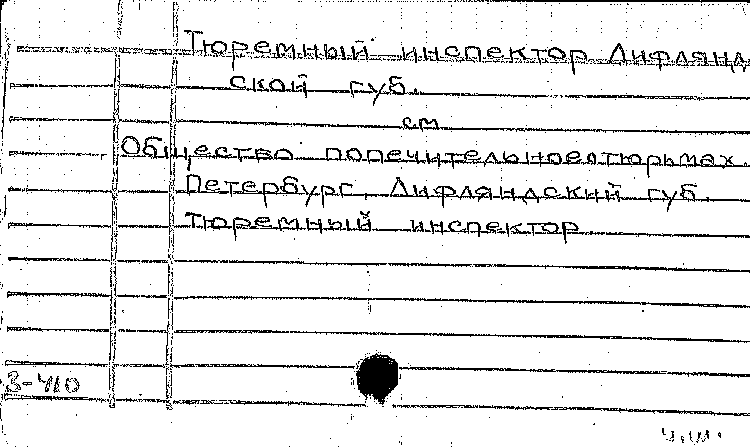 Тюремный инспектор Лифлянд
ской губ.
см
Общество попечительное о тюрьмах.
Петербург, Лифляндский губ.
тюремный инспектор
З-410
ч.ш.